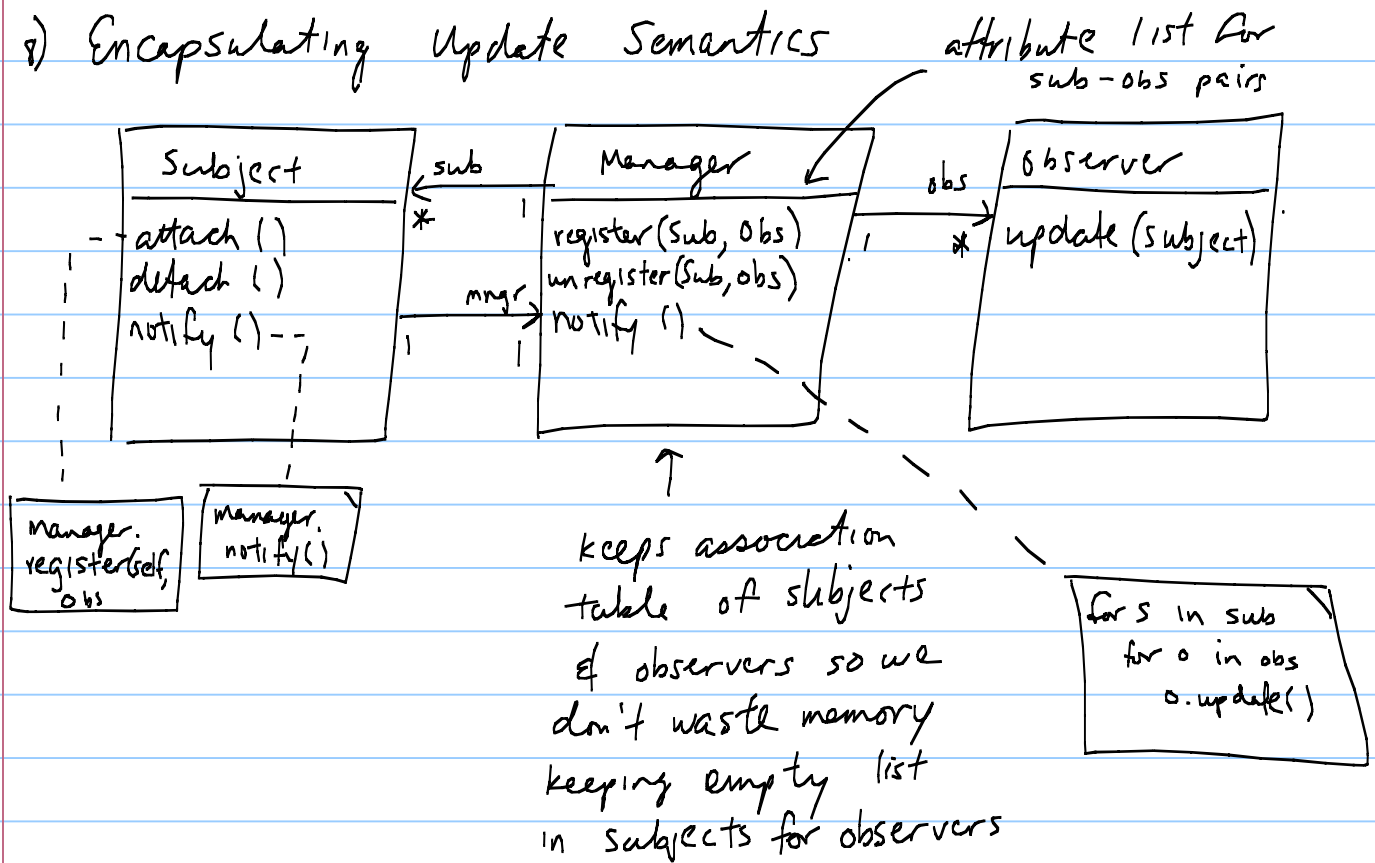 8) Encapsulating Update Semantics
attribute list for
sub-obs pairs
Subject
attach ()
detach ()
notify ()
sub
*
1
mngr
1
1
Manager
register(Sub, Obs)
unregister(Sub, obs)
notify ()
obs
1
*
observer
update (subject)
manager.
register(self,
obs
manager.
notify()
keeps association
table of subjects
& observers so we
don't waste memory
keeping empty list
in subjects for observers
for s in sub
for o in obs
o.update()